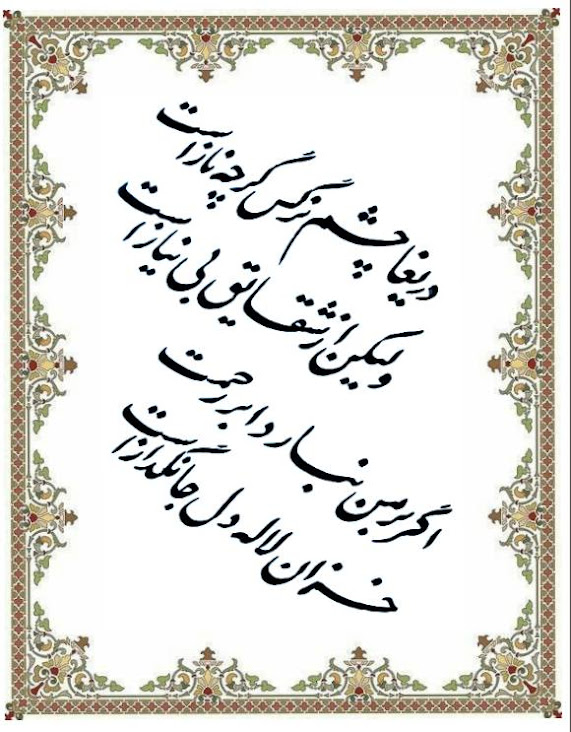 دریغا چشم نرگس گرچه ناز است
ولیکن از شقایق بی نیاز است
اگر بر من نبارد ابر رحمت
خزان لاله دل جانگداز است